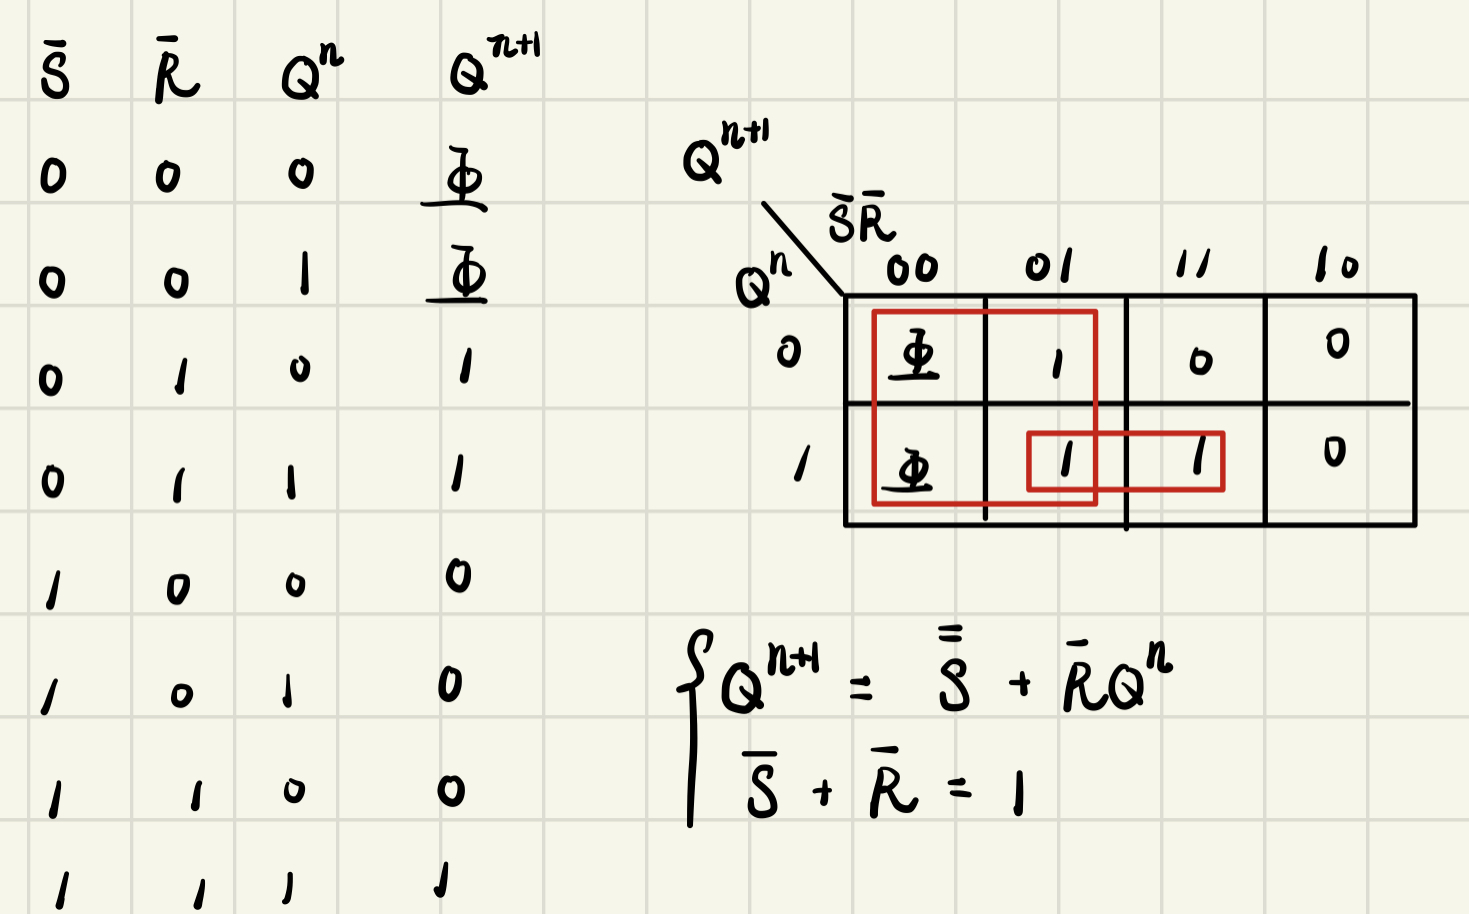 S̄ R̄ Qⁿ Qⁿ⁺¹
0 0 0 Φ
0 0 1 Φ
0 1 0 1
0 1 1 1
1 0 0 0
1 0 1 0
1 1 0 0
1 1 1 1
Qⁿ⁺¹
S̄R̄
Qⁿ 00 01 11 10
0 Φ 1 0 0
1 Φ 1 1 0
{ Qⁿ⁺¹ = S̿ + R̄Qⁿ
S̄ + R̄ = 1